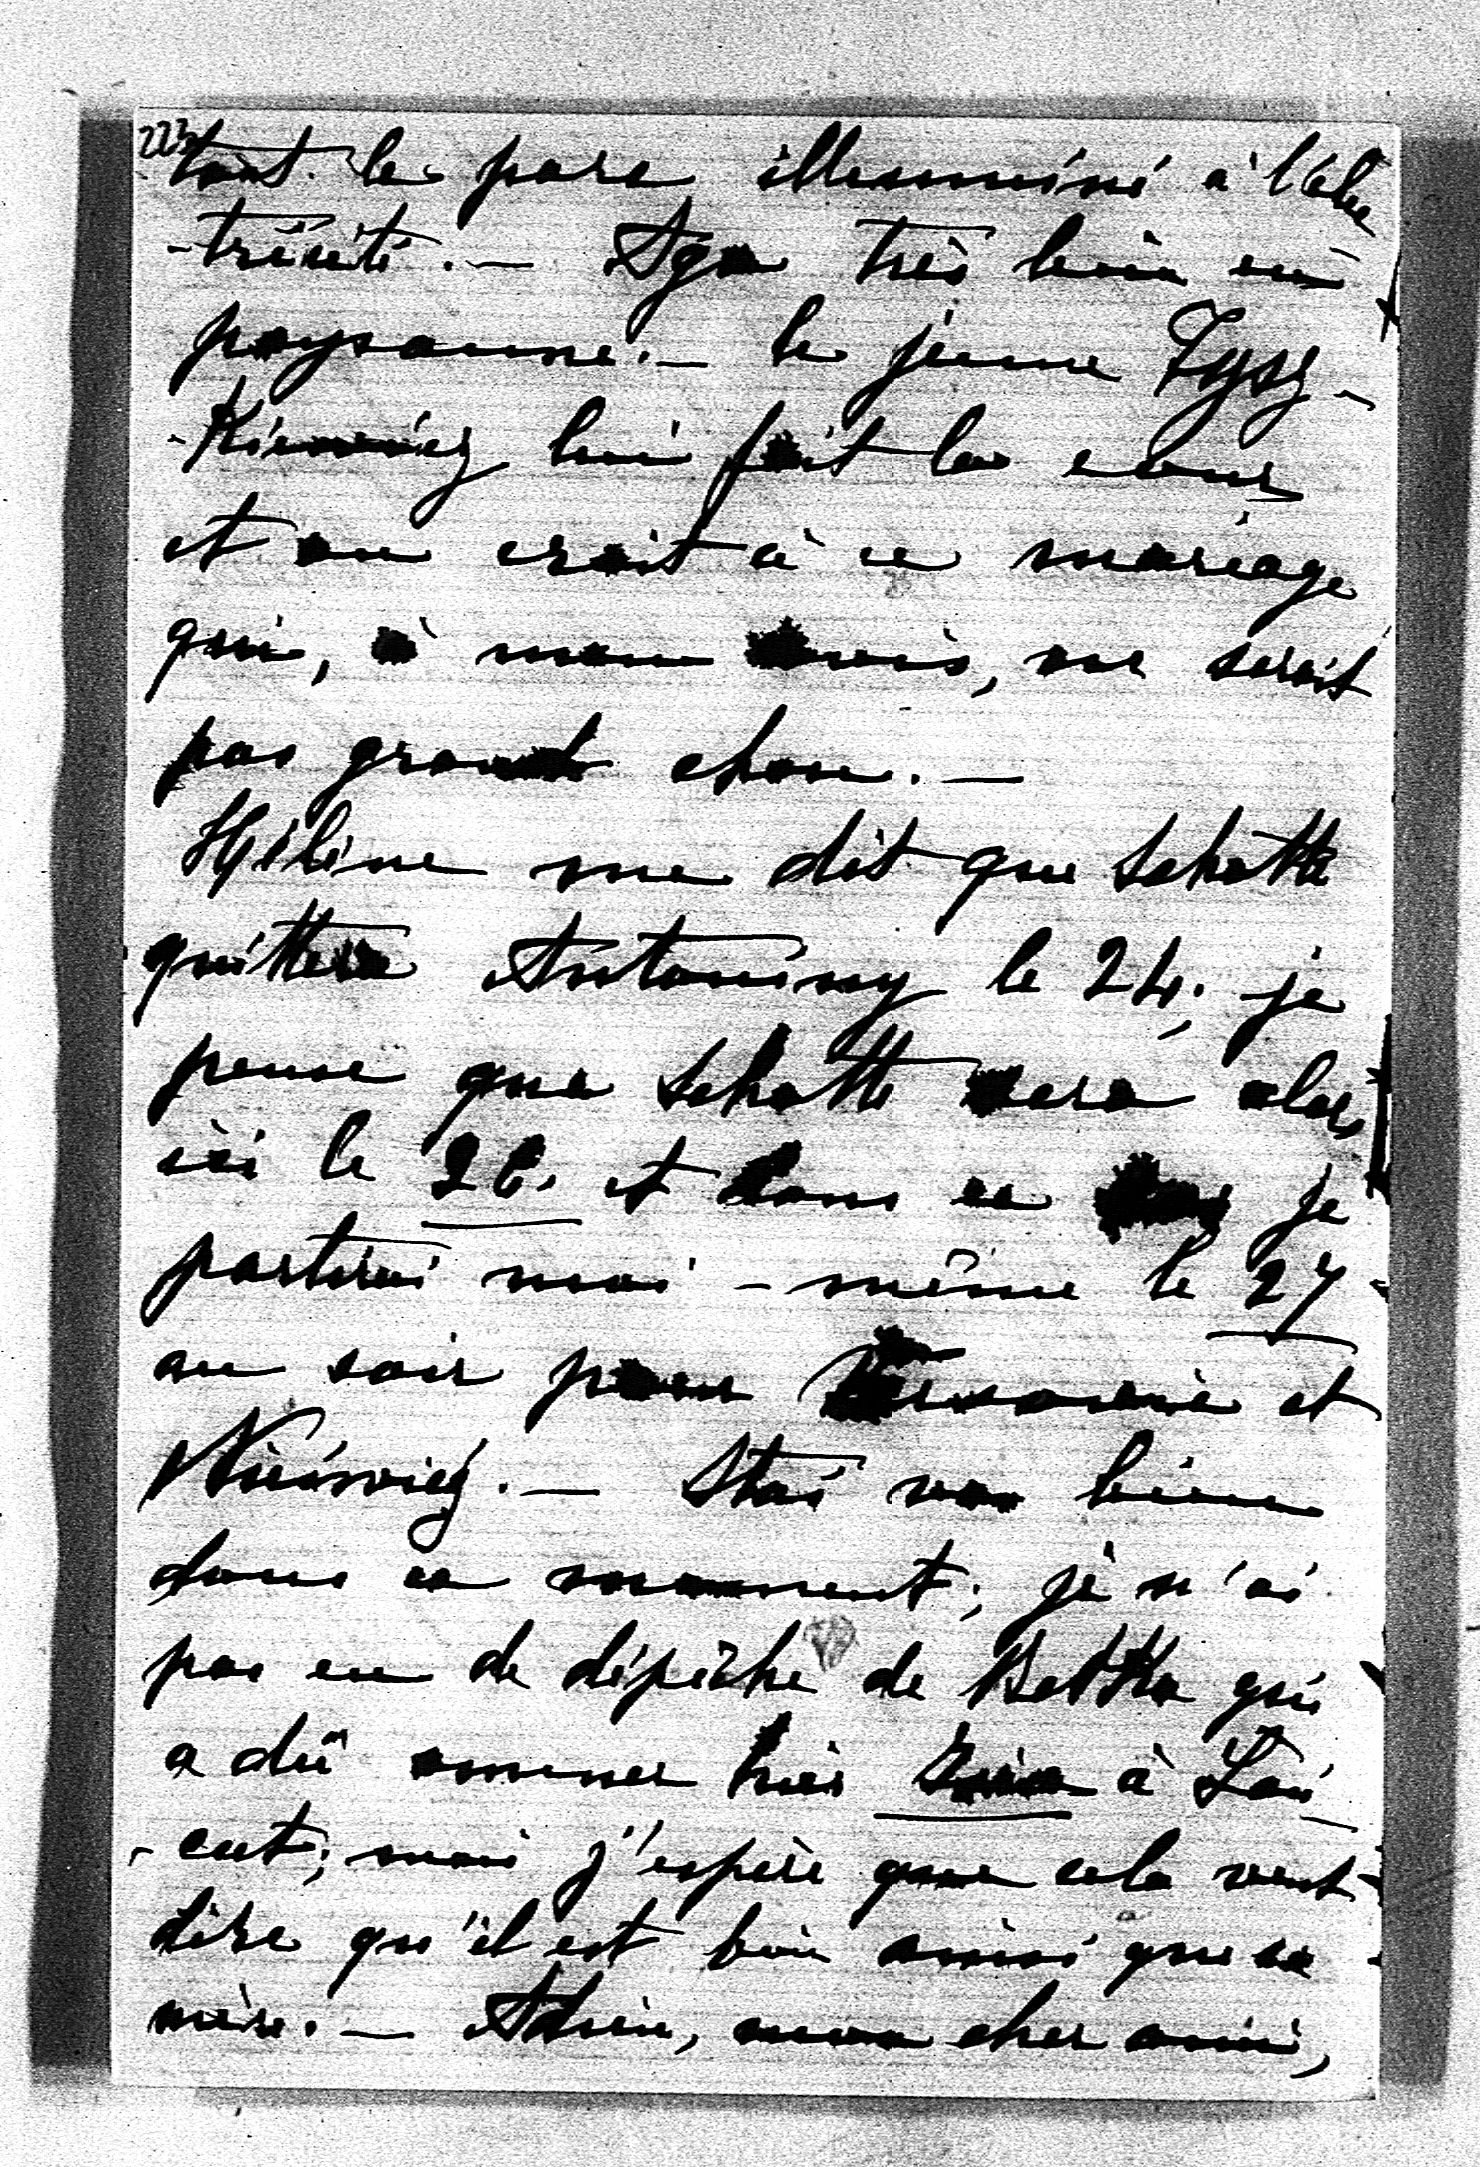 223
tout le parc illuminé à l'élec
-tricité. — Iga très bien en
paysanne. — le jeune Tysz-
-Kiewicz lui fait la cour
et on croit à ce mariage
qui, à mon avis, ne serait
pas grand chose. —
Hélène me dit que Schatte
quittera Antoniny le 24; je
pense que Schatte sera alors
ici le 26. et dans ce cas je
partirai moi-même le 27
au soir pour Varsovie et
Nieśwież. — Stas va bien
dans ce moment; je n'ai
pas eu de dépêche de Betka qui
a dû amener hier à Łań
-cut; mais j'espère que cela veut
dire qu'il est bien ainsi que sa
mère. — Adieu, mon cher ami,